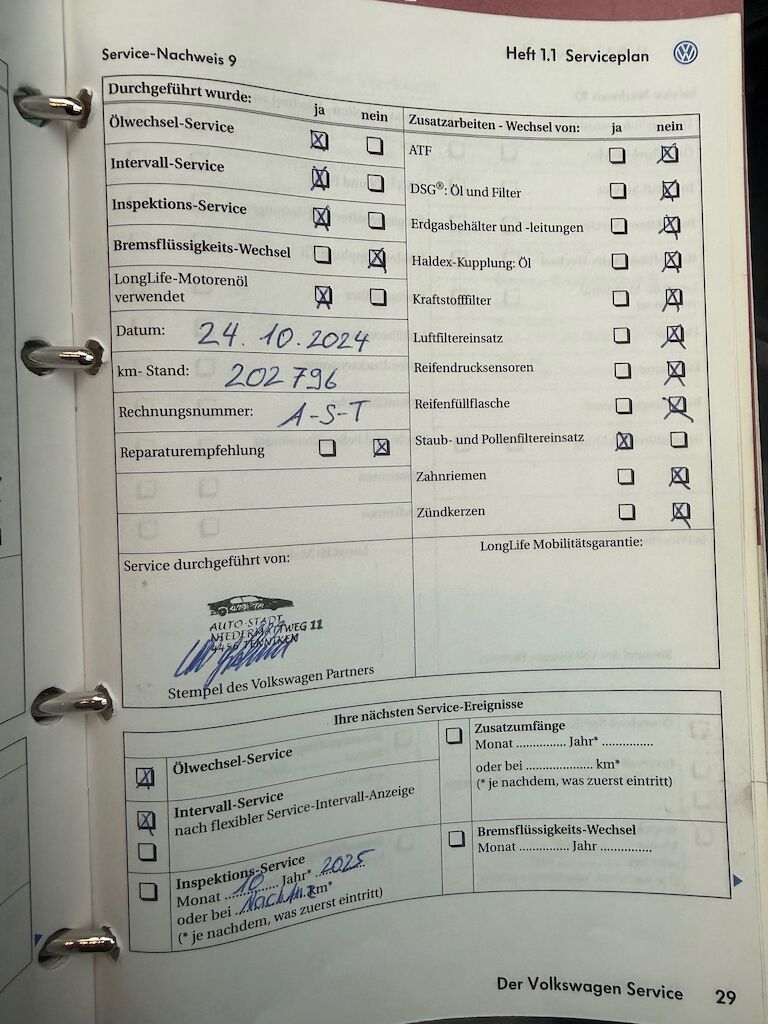 Service-Nachweis 9
Heft 1.1 Serviceplan
Durchgeführt wurde:
ja nein
Ölwechsel-Service
Intervall-Service
Inspektions-Service
Bremsflüssigkeits-Wechsel
LongLife-Motorenöl
verwendet
Datum: 24.10.2024
km- Stand: 202796
Rechnungsnummer: A-S-T
Reparaturempfehlung
Zusatzarbeiten - Wechsel von: ja nein
ATF
DSG®: Öl und Filter
Erdgasbehälter und -leitungen
Haldex-Kupplung: Öl
Kraftstofffilter
Luftfiltereinsatz
Reifendrucksensoren
Reifenfüllflasche
Staub- und Pollenfiltereinsatz
Zahnriemen
Zündkerzen
Service durchgeführt von:
AUTO-STADT
NIEDERMATTWEG 11
4456 TENNIKEN
Stempel des Volkswagen Partners
LongLife Mobilitätsgarantie:
Ihre nächsten Service-Ereignisse
Ölwechsel-Service
Intervall-Service
nach flexibler Service-Intervall-Anzeige
Inspektions-Service
Monat ...10... Jahr* ...2025...
oder bei ............ km*
(* je nachdem, was zuerst eintritt)
Zusatzumfänge
Monat ............. Jahr* .............
oder bei .................... km*
(* je nachdem, was zuerst eintritt)
Bremsflüssigkeits-Wechsel
Monat ............. Jahr .............
Der Volkswagen Service 29